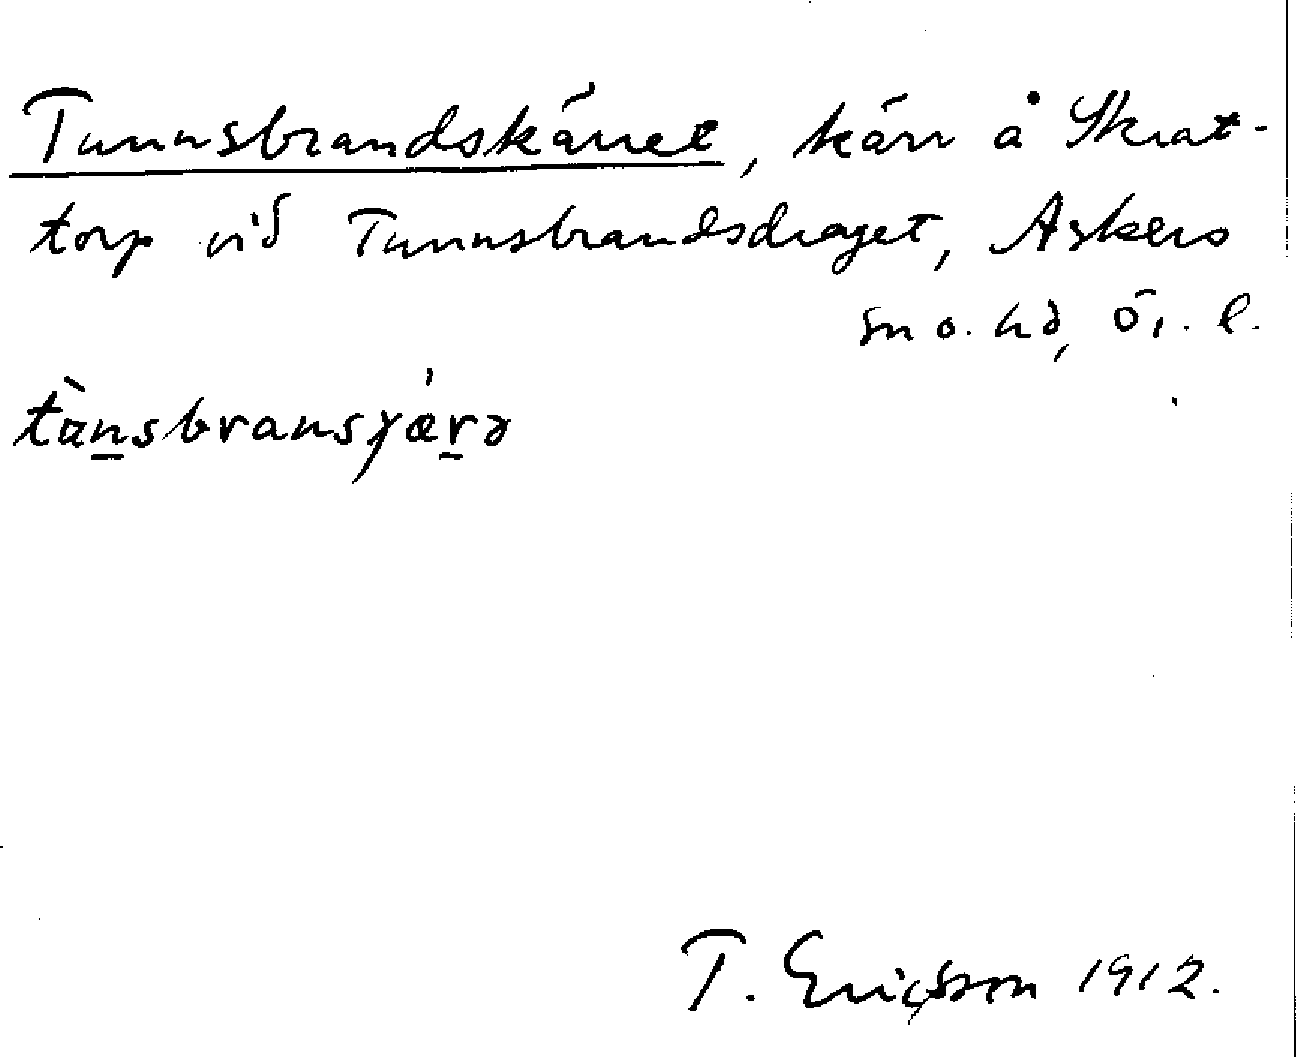 Tunnsbrandskärret, kärr å Skrat-
torp vid Tunnsbrandsdraget, Askers
sn o. hd, Ör. l.
tùnsbransɟǽrə
T. Ericsson 1912.